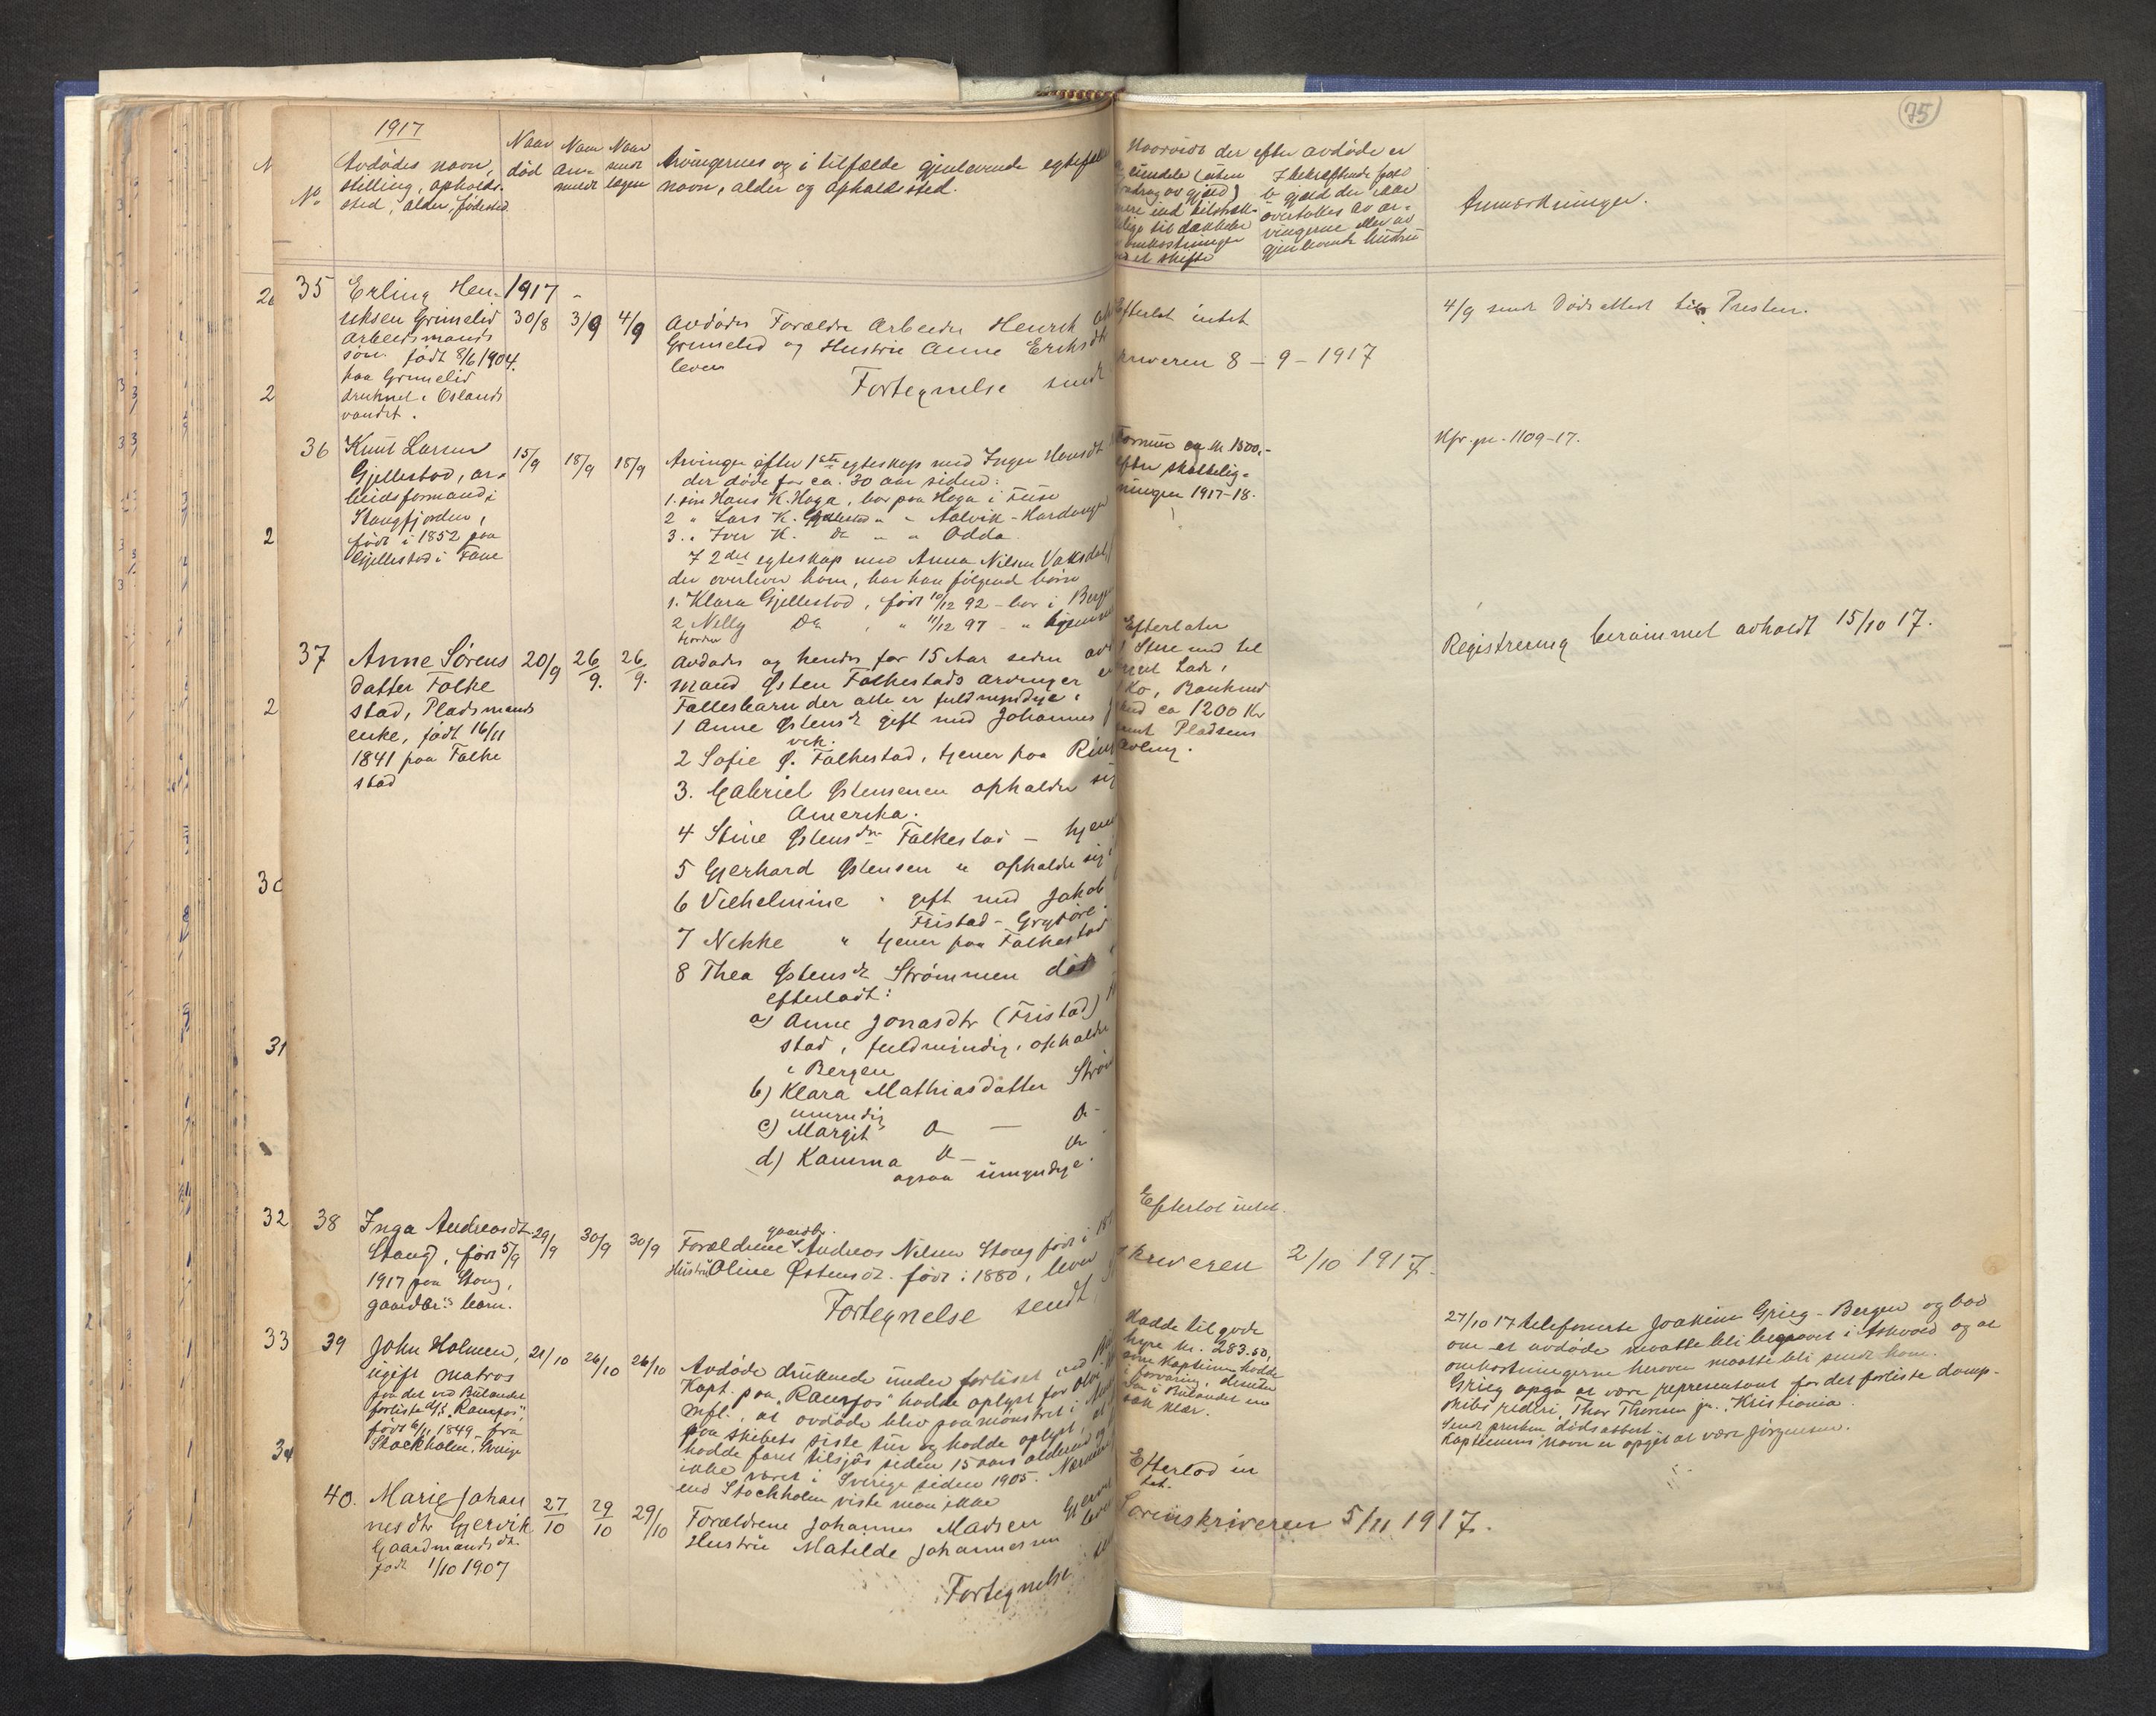 75
1917
No
Avdødes navn,
stilling, opholds-
sted, alder, fødested.
Naar
død
Naar
an-
meldt
Naar
sendt
lagen
Arvingernes og i tilfælde gjenlevende egtefæl
navn, alder og opholdssted.
Hvorvidt der efter avdøde er
eiendele (uten
fradrag av gjæld)
mere end tilstræk-
kelige til dækkelse
omkostninger
ved et skifte
I bekræftende fald
b gjæld der ikke
overtakes av ar-
vingerne eller av
gjenlevende hustru
Anmærkninger.
35
Erling Hen-
riksen Grimelid
arbeidsmands
søn født 8/6 1904.
paa Grimelid
druknet i Oslands
vandet.
1917
30/8
3/9
4/9
Avdødes Forældre Arbeider Henrik
Grimelid og Hustru Anne Eriksdt
lever
Fortegnelse sendt
Efterlot intet
skriveren 8 - 9 - 1917
4/9 sendt Dødsattest til Presten.
36
Knut Larsen
Gjellestad, ar-
beidsformand i
Stangfjorden,
født i 1852 paa
Gjellestad i Fane
15/9
18/9
18/9
Arvinger efter 1ste egteskap med Inger Hansdt
der døde for ca. 30 aar siden:
1. søn Hans K. Haga, bor paa Haga i Fuse
2 " Lars K. Gjellestad " " Aalvik - Hardanger
3. " Iver K. Do " " Odda
I 2det egteskap med Anna Nilsen Vaksdal,
der overlever ham, har han følgende børn
1. Klara Gjellestad, født 10/12 92 - bor i Bergen
2 Nelly Do " " 11/12 97 - " hjemme
Formue ca kr 1500,-
efter skattelig-
ningen 1917-18.
Kfr. jnr. 1109-17.
37
Anne Sørens
datter Falke
stad, Pladsmands
enke, født 16/11
1841 paa Falke
stad
20/9
26/9.
26/9.
Avdødes og hendes for 15 Aar siden
mand Østen Falkestads arvinger er
Fællesbarn der alle er fuldmyndige:
1 Anne Østensdt gift med Johannes
vik.
2 Sofie Ø. Falkestad, tjener paa
3. Gabriel Østensen opholder sig
Amerika.
4 Stine Østensdtr Falkestad - hjem
5 Gjerhard Østensen " opholder sig
6 Vilhelmine " gift med Jakob
Fristad - Grytøre.
7 Nekke " tjener paa Falkestad
8 Thea Østensdt Strømmen død
efterladt:
a) Anne Jonasdtr (Fristad)
stad, fuldmyndig, opholder
i Bergen
b) Klara Mathiasdatter Strøm
umyndig
c) Margit Do — Do
d) Kamma Do — Do
ogsaa umyndige.
Efterlater
1 Stue med til
hørende Lade,
1 Ko, Bankind
skud ca 1200 Kr
samt Pladsens
avling.
Registrering berammet avholdt 15/10 17.
38
Inga Andreasdt
Stang, født 5/9
1917 paa Stang,
gaardbr's barn.
29/9
30/9
30/9
Forældrene gaardbr. Andreas Nilsen Stang født i
Hustru Oline Østensdt. født i 1880, lever
Fortegnelse sendt
Efterlot intet.
skriveren 2/10 1917.
39
John Holmen,
ugift matros
fra det ved Bulandet
forliste d/s "Ramfos",
født 6/11 1849 fra
Stockholm, Sverige
21/10
26/10
26/10
Avdøde druknede under forliset
Kapt. paa "Ramfos" hadde oplyst for
mfl., at avdøde blev paamønstret i
paa skibets siste tur og hadde oplyst, at
hadde faret tilsjøs siden 15 aars alderen og
ikke været i Sverige siden 1905. Nærmere
end Stockholm viste man ikke
Hadde til gode
hyre kr. 283.50,
som Kapteinen hadde
i forvaring, desuten
laa i Bulandet en
sæk klær.
27/10 17 telefonerte Joakim Grieg - Bergen og bad
om at avdøde maatte bli begravet i Askvold og at
omkostningerne herover maatte bli sendt ham.
Grieg opga at være representant for det forliste damp-
skibs rederi, Thor Thoresen jr., Kristiania.
Sendt presten dødsattest
Kapteinens navn er opgit at være Jørgensen.
40.
Marie Johan
nesdtr Gjervik
Gaardmandsdt.
født 1/10 1907
27/10
29/10
29/10
Forældrene Johannes Madsen Gjervik
Hustru Matilde Johannesen lever
Fortegnelse
Efterlod in
tet.
Sorenskriveren 5/11 1917.